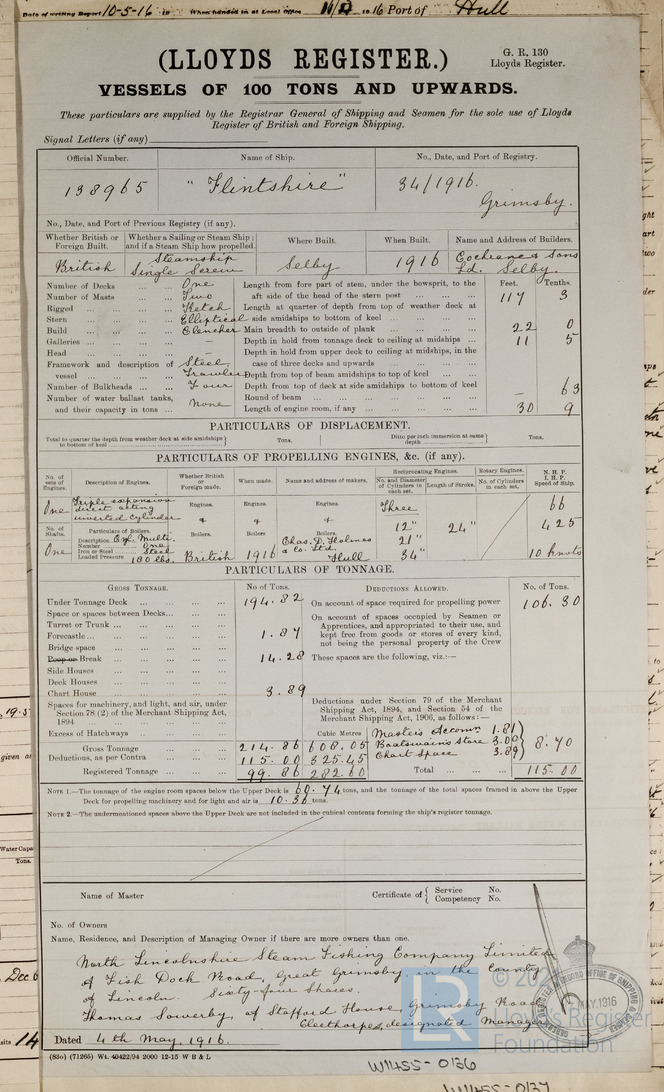 Date of writing Report 10-5-16 19 When handed in at Local Office 1916 Port of Hull
(LLOYDS REGISTER.)
G. R. 130
Lloyds Register.
VESSELS OF 100 TONS AND UPWARDS.
These particulars are supplied by the Registrar General of Shipping and Seamen for the sole use of Lloyds
Register of British and Foreign Shipping.
Signal Letters (if any)
Official Number. Name of Ship. No., Date, and Port of Registry.
138965 "Flintshire" 34/1916.
Grimsby.
No., Date, and Port of Previous Registry (if any).
Whether British or Foreign Built. Whether a Sailing or Steam Ship; and if a Steam Ship how propelled. Where Built. When Built. Name and Address of Builders.
British Steamship Single Screw Selby 1916 Cochrane & Sons Ld. Selby.
Number of Decks One Length from fore part of stem, under the bowsprit, to the Feet. Tenths.
Number of Masts Two aft side of the head of the stern post 117 3
Rigged Ketch Length at quarter of depth from top of weather deck at
Stern Elliptical side amidships to bottom of keel
Build Clencher Main breadth to outside of plank 22 0
Galleries — Depth in hold from tonnage deck to ceiling at midships 11 5
Head — Depth in hold from upper deck to ceiling at midships, in the
Framework and description of Steel case of three decks and upwards
vessel Trawler Depth from top of beam amidships to top of keel
Number of Bulkheads Four Depth from top of deck at side amidships to bottom of keel
Number of water ballast tanks, Round of beam — 63
and their capacity in tons None Length of engine room, if any 30 9
PARTICULARS OF DISPLACEMENT.
Total to quarter the depth from weather deck at side amidships to bottom of keel Tons. Ditto per inch immersion at same depth Tons.
PARTICULARS OF PROPELLING ENGINES, &c. (if any).
No. of sets of Engines. Description of Engines. Whether British or Foreign made. When made. Name and address of makers. Reciprocating Engines. Rotary Engines. N. H. P. I. H. P. Speed of Ship.
No. and Diameter of Cylinders in each set. Length of Stroke. No. of Cylinders in each set.
One Triple expansion direct acting inverted cylinder Engines. Engines. Engines. Three 66
No. of Shafts. Particulars of Boilers. Boilers. Boilers. Boilers. 12" 24" 425
Description Cyl. Multi. Chas. D. Holmes 21"
Number One
One Iron or Steel Steel & Co. Ltd.
Loaded Pressure 180 lbs. British 1916 Hull 34" 10 knots
PARTICULARS OF TONNAGE.
GROSS TONNAGE. No of Tons. DEDUCTIONS ALLOWED. No. of Tons.
Under Tonnage Deck 194.82 On account of space required for propelling power 106.30
Space or spaces between Decks On account of spaces occupied by Seamen or
Turret or Trunk Apprentices, and appropriated to their use, and
Forecastle 1.87 kept free from goods or stores of every kind,
Bridge space not being the personal property of the Crew
Poop or Break 14.28 These spaces are the following, viz.:—
Side Houses
Deck Houses
Chart House 3.89
Spaces for machinery, and light, and air, under Section 78 (2) of the Merchant Shipping Act, 1894
Deductions under Section 79 of the Merchant Shipping Act, 1894, and Section 54 of the Merchant Shipping Act, 1906, as follows:—
Excess of Hatchways Cubic Metres Master's Accomn. 1.81
Gross Tonnage 214.86 608.05 Boatswain's Store 3.00 8.70
Deductions, as per Contra 115.00 325.45 Chart Space 3.89
Registered Tonnage 99.86 282.60 Total 115.00
NOTE 1.—The tonnage of the engine room spaces below the Upper Deck is 60.74 tons, and the tonnage of the total spaces framed in above the Upper
Deck for propelling machinery and for light and air is 10.36 tons.
NOTE 2.—The undermentioned spaces above the Upper Deck are not included in the cubical contents forming the ship's register tonnage.
Name of Master Certificate of { Service No. Competency No.
No. of Owners
Name, Residence, and Description of Managing Owner if there are more owners than one.
North Lincolnshire Steam Fishing Company Limited
of Fish Dock Road, Great Grimsby, in the County
of Lincoln. Sixty-four Shares.
Thomas Sowerby, of Stafford House, Grimsby Road
Cleethorpes, designated Manager
Dated 4th May, 1916.
(83o) (71265) Wt. 40422/94 2000 12-15 W B & L
LR
Lloyd's Register
Foundation
MAY. 1916
W1455-0136
W1455-0137
Water Capa
Tons.
Dec 6
14
given as